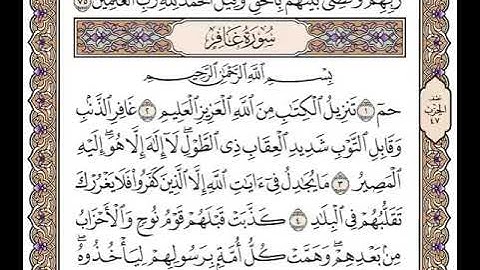 رَبِّهِمْ وَقُضِيَ بَيْنَهُم بِٱلْحَقِّ وَقِيلَ ٱلْحَمْدُ لِلَّهِ رَبِّ ٱلْعَٰلَمِينَ ٧٥
سُورَةُ غَافِرٍ
بِسْمِ ٱللَّهِ ٱلرَّحْمَٰنِ ٱلرَّحِيمِ
حمٓ ١ تَنزِيلُ ٱلْكِتَٰبِ مِنَ ٱللَّهِ ٱلْعَزِيزِ ٱلْعَلِيمِ ٢ غَافِرِ ٱلذَّنۢبِ
وَقَابِلِ ٱلتَّوْبِ شَدِيدِ ٱلْعِقَابِ ذِى ٱلطَّوْلِ ۖ لَآ إِلَٰهَ إِلَّا هُوَ ۖ إِلَيْهِ
ٱلْمَصِيرُ ٣ مَا يُجَٰدِلُ فِىٓ ءَايَٰتِ ٱللَّهِ إِلَّا ٱلَّذِينَ كَفَرُوا۟ فَلَا يَغْرُرْكَ
تَقَلُّبُهُمْ فِى ٱلْبِلَٰدِ ٤ كَذَّبَتْ قَبْلَهُمْ قَوْمُ نُوحٍ وَٱلْأَحْزَابُ
مِنۢ بَعْدِهِمْ ۖ وَهَمَّتْ كُلُّ أُمَّةٍۭ بِرَسُولِهِمْ لِيَأْخُذُوهُ ۖ
الحزب
٤٧